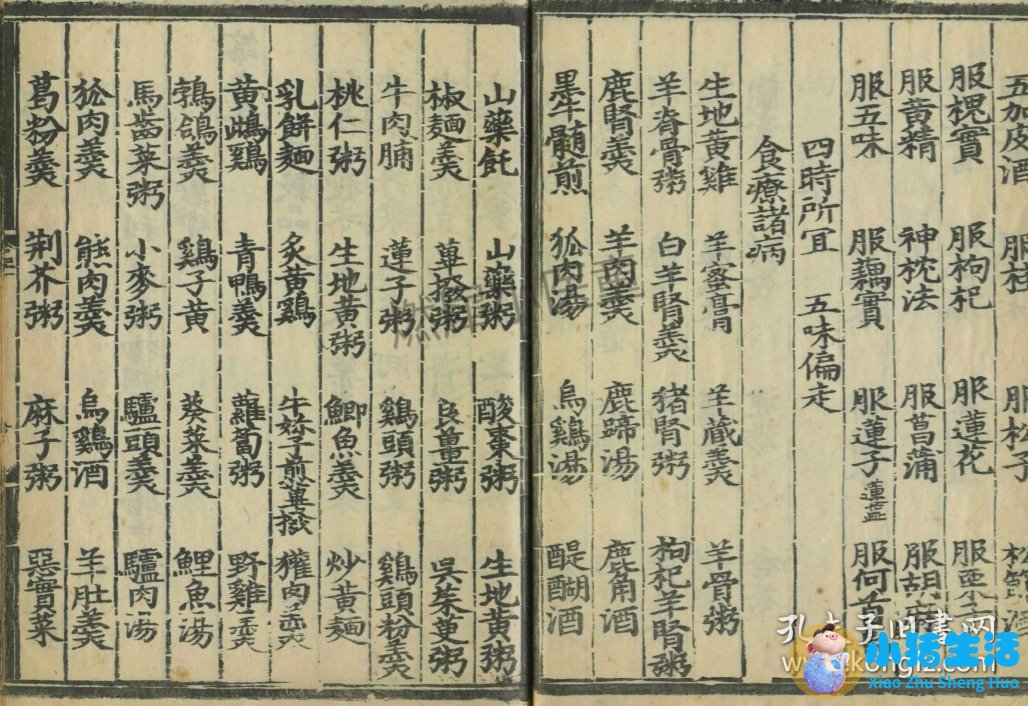 五加皮酒
服槐實 服枸杞 服蓮花
服黄精 神枕法 服菖蒲 服胡麻
服五味 服藕實 服蓮子 蓮蘂 服何首
四時所宜 五味偏走
食療諸病
生地黄雞 羊蜜膏 羊藏羹 羊骨粥
羊脊骨粥 白羊腎羹 猪腎粥 枸杞羊腎粥
鹿腎羹 羊肉羹 鹿蹄湯 鹿角酒
黑牛髓煎 狐肉湯 烏鷄湯 醍醐酒
山藥飥 山藥粥 酸棗粥 生地黄粥
椒麵羹 蓽撥粥 良薑粥 吳茱萸粥
牛肉脯 蓮子粥 鷄頭粥 鷄頭粉羹
桃仁粥 生地黄粥 鯽魚羹 炒黄麵
乳餅麵 炙黄鷄 牛妳子煎蓽撥 獾肉羹
黄鴟鷄 青鴨羹 蘿蔔粥 野雞羹
鵓鴿羹 鷄子黄 葵菜羹 鯉魚湯
馬齒菜粥 小麥粥 驢頭羹 驢肉湯
狐肉羹 熊肉羹 烏鷄酒 羊肚羹
葛粉羹 荆芥粥 麻子粥 惡實菜
孔夫子旧書网
小猪生活
Xiao Zhu Sheng Huo